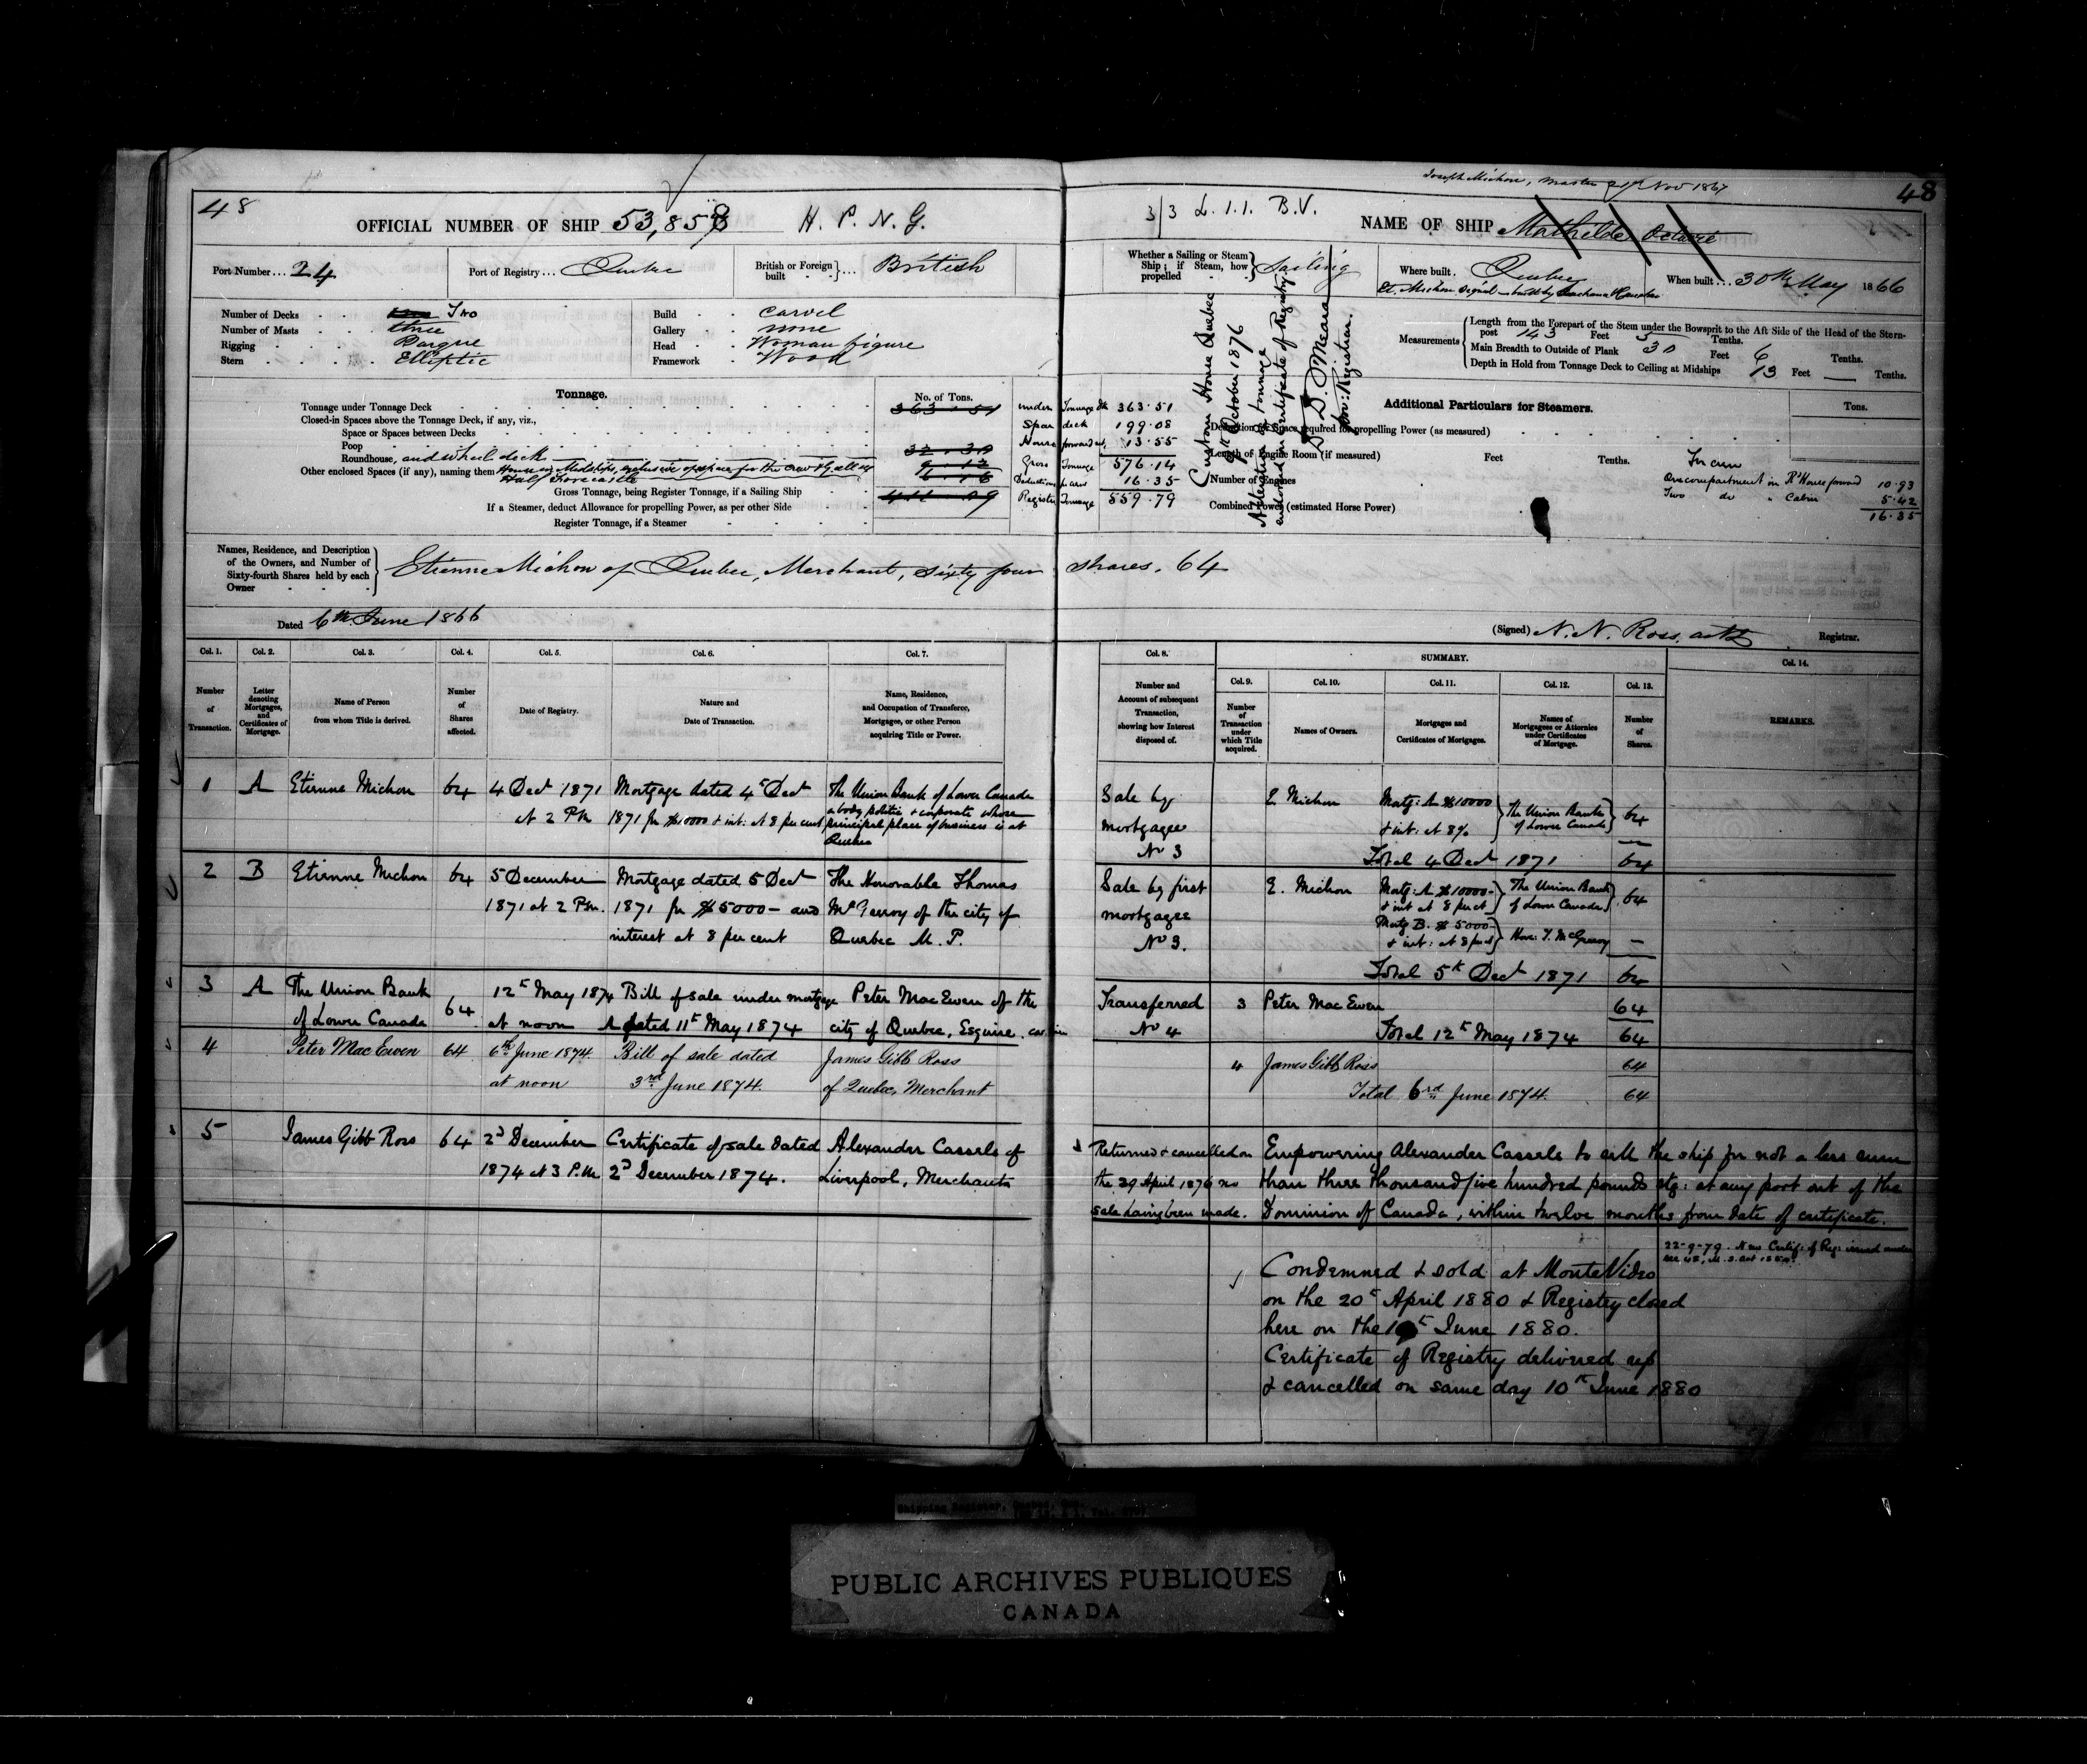 Joseph Michon, Master 21st Nov 1867
48
48
OFFICIAL NUMBER OF SHIP 53,858 H. P. N. G.
3/3 L. 1. 1. B.V.
NAME OF SHIP Mathilde Octavie
Port Number... 24
Port of Registry... Quebec
British or Foreign built }... British
Whether a Sailing or Steam Ship; if Steam, how propelled } Sailing
Where built. Quebec
When built... 30th May 1866
Number of Decks Two
Number of Masts three
Rigging Barque
Stern Elliptic
Build carvel
Gallery none
Head Woman figure
Framework Wood
Measurements
Length from the Forepart of the Stem under the Bowsprit to the Aft Side of the Head of the Stern-
post 143 Feet 5 Tenths.
Main Breadth to Outside of Plank 30 Feet 6 Tenths.
Depth in Hold from Tonnage Deck to Ceiling at Midships 13 Feet — Tenths.
Custom House Quebec
9th October 1876
Alteration in tonnage
endorsed on certificate of Registry
D. D. O'Meara
Registrar.
Tonnage.
No. of Tons.
Tonnage under Tonnage Deck 363.51
Closed-in Spaces above the Tonnage Deck, if any, viz.,
Space or Spaces between Decks
Poop
Roundhouse, and wheel deck
Other enclosed Spaces (if any), naming them House in Midships, exclusive of space for the crew & galley
Half Forecastle
Gross Tonnage, being Register Tonnage, if a Sailing Ship
If a Steamer, deduct Allowance for propelling Power, as per other Side
Register Tonnage, if a Steamer
under Tonnage Dk 363.51
Spar deck 199.08
House forward &c, 13.55
Gross Tonnage 576.14
Deductions pr crew 16.35
Register Tonnage 559.79
Additional Particulars for Steamers.
Tons.
Deduction for Space required for propelling Power (as measured)
Length of Engine Room (if measured) Feet Tenths.
Number of Engines
Combined Power (estimated Horse Power)
For crew
One compartment in Rd House forward 10.93
Two do " Cabin 5.42
16.35
Names, Residence, and Description of the Owners, and Number of Sixty-fourth Shares held by each Owner
Etienne Michon of Quebec, Merchant, sixty four shares. 64
Dated 6th June 1866
(Signed) N. N. Ross, actg Registrar.
Col. 1. Col. 2. Col. 3. Col. 4. Col. 5. Col. 6. Col. 7. Col. 8. SUMMARY. Col. 14.
Col. 9. Col. 10. Col. 11. Col. 12. Col. 13.
Number of Transaction.
Letter denoting Mortgages, and Certificates of Mortgage.
Name of Person from whom Title is derived.
Number of Shares affected.
Date of Registry.
Nature and Date of Transaction.
Name, Residence, and Occupation of Transferee, Mortgagee, or other Person acquiring Title or Power.
Number and Account of subsequent Transaction, showing how Interest disposed of.
Number of Transaction under which Title acquired.
Names of Owners.
Mortgages and Certificates of Mortgages.
Names of Mortgagees or Attornies under Certificates of Mortgage.
Number of Shares.
REMARKS.
1 A Etienne Michon 64 4 Dect 1871 Mortgage dated 4th Dect The Union Bank of Lower Canada
at 2 PM 1871 for $10000 & int: at 8 per cent a body politic & corporate whose
principal place of business is at
Quebec
Sale by mortgagee No 3
E Michon Mortg: A $10000 & int: at 8% } The Union Bank of Lower Canada } 64
Total 4 Dect 1871 64
2 B Etienne Michon 64 5 December Mortgage dated 5 Dect The Honorable Thomas
1871 at 2 P.M. 1871 for $5000 — and McGreevy of the city of
interest at 8 per cent Quebec M. P.
Sale by first mortgagee No 3.
E. Michon Mortg: A $10000 — & int at 8 per ct } The Union Bank of Lower Canada } 64
Mortg B. $5000 — & int: at 8 per ct } Hon: T. McGreevy —
Total 5th Dect 1871 64
3 A The Union Bank 64 12th May 1874 Bill of sale under mortgage Peter MacEwen of the
of Lower Canada at noon A dated 11th May 1874 city of Quebec, Esquire. cashier
Transferred No 4
3 Peter MacEwen 64
Total 12th May 1874 64
4 Peter MacEwen 64 6th June 1874. Bill of sale dated James Gibb Ross
at noon 3rd June 1874. of Quebec, Merchant
4 James Gibb Ross 64
Total 6rd June 1874. 64
5 James Gibb Ross 64 2d December Certificate of sale dated Alexander Cassels of
1874 at 3 P.M. 2d December 1874. Liverpool, Merchant
Returned & cancelled on
the 29 April 1876 no
sale having been made.
Empowering Alexander Cassels to sell the ship for not a less sum
than three thousand five hundred pounds stg: at any port out of the
Dominion of Canada, within twelve months from date of certificate.
22-9-79. New Certif: of Reg: issued under
sec 48, M. S. Act 1854.
Condemned & sold at Monte Video
on the 20th April 1880 & Registry closed
here on the 10th June 1880.
Certificate of Registry delivered up
& cancelled on same day 10th June 1880
Shipping Register, Quebec, Que.
PUBLIC ARCHIVES PUBLIQUES
CANADA